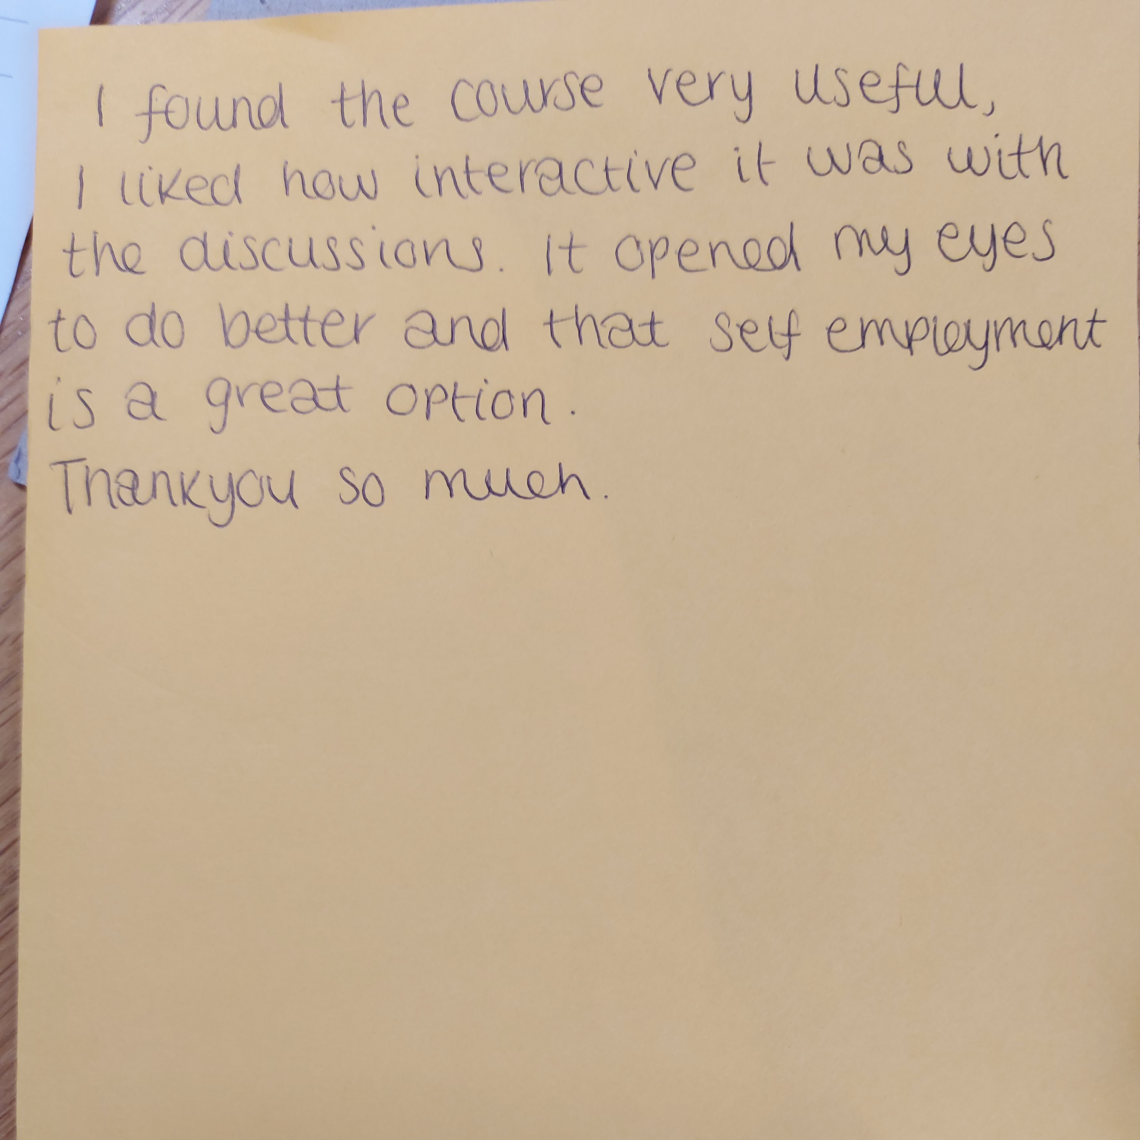 I found the course very useful,
I liked how interactive it was with
the discussions. It opened my eyes
to do better and that self employment
is a great option.
Thankyou so much.